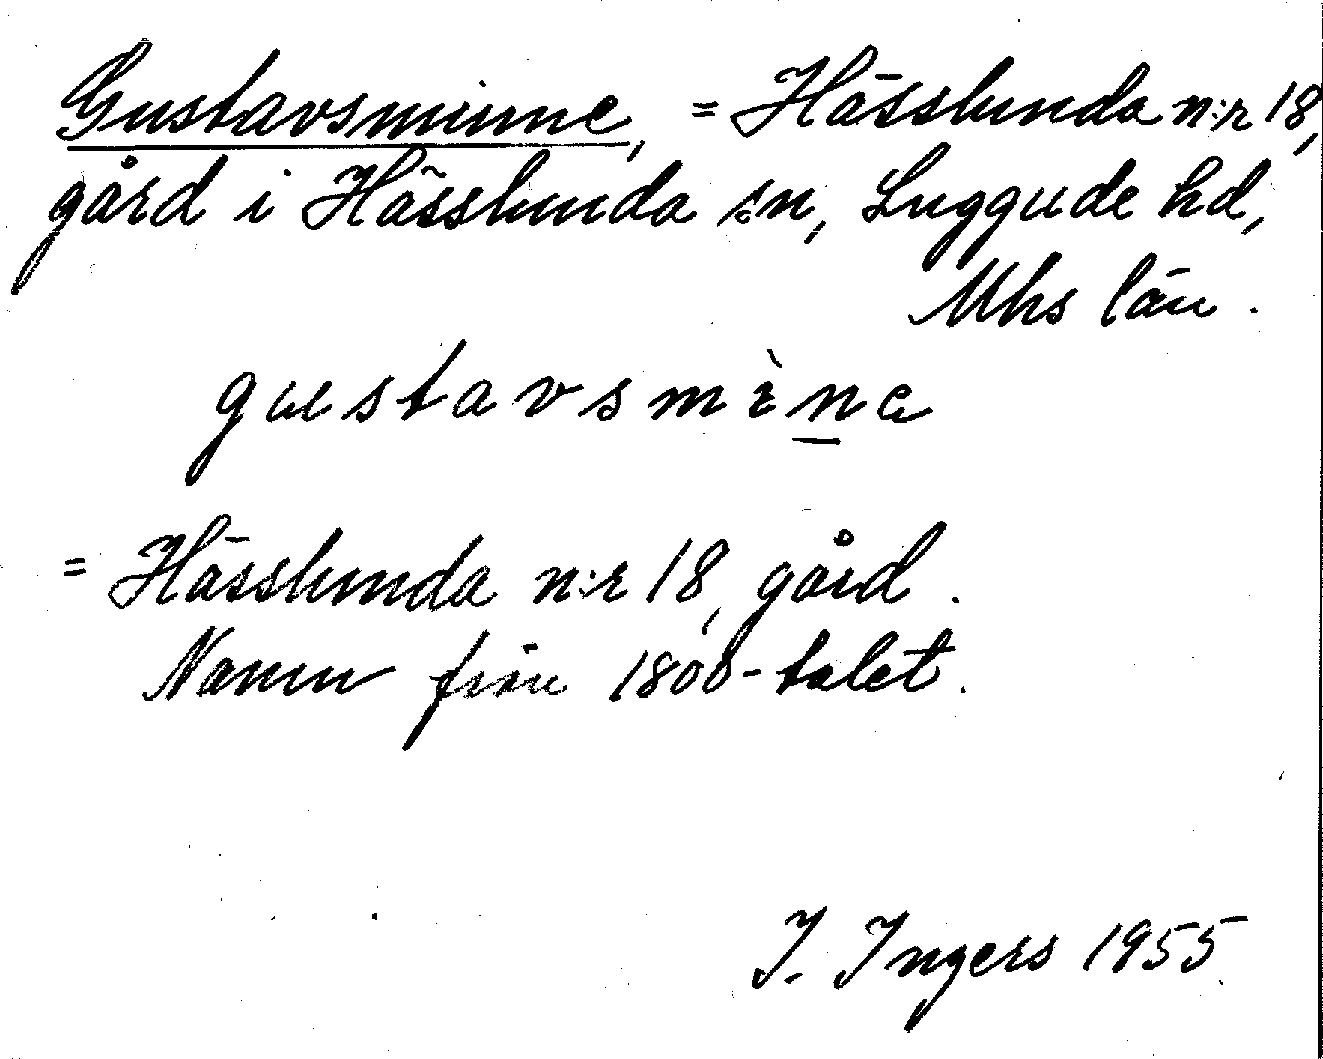 Gustavsminne, = Hässlunda n:r 18,
gård i Hässlunda sn, Luggude hd,
Mhs län.
gustavsmìna
= Hässlunda n:r 18, gård.
Namn från 1800-talet.
I. Ingers 1955